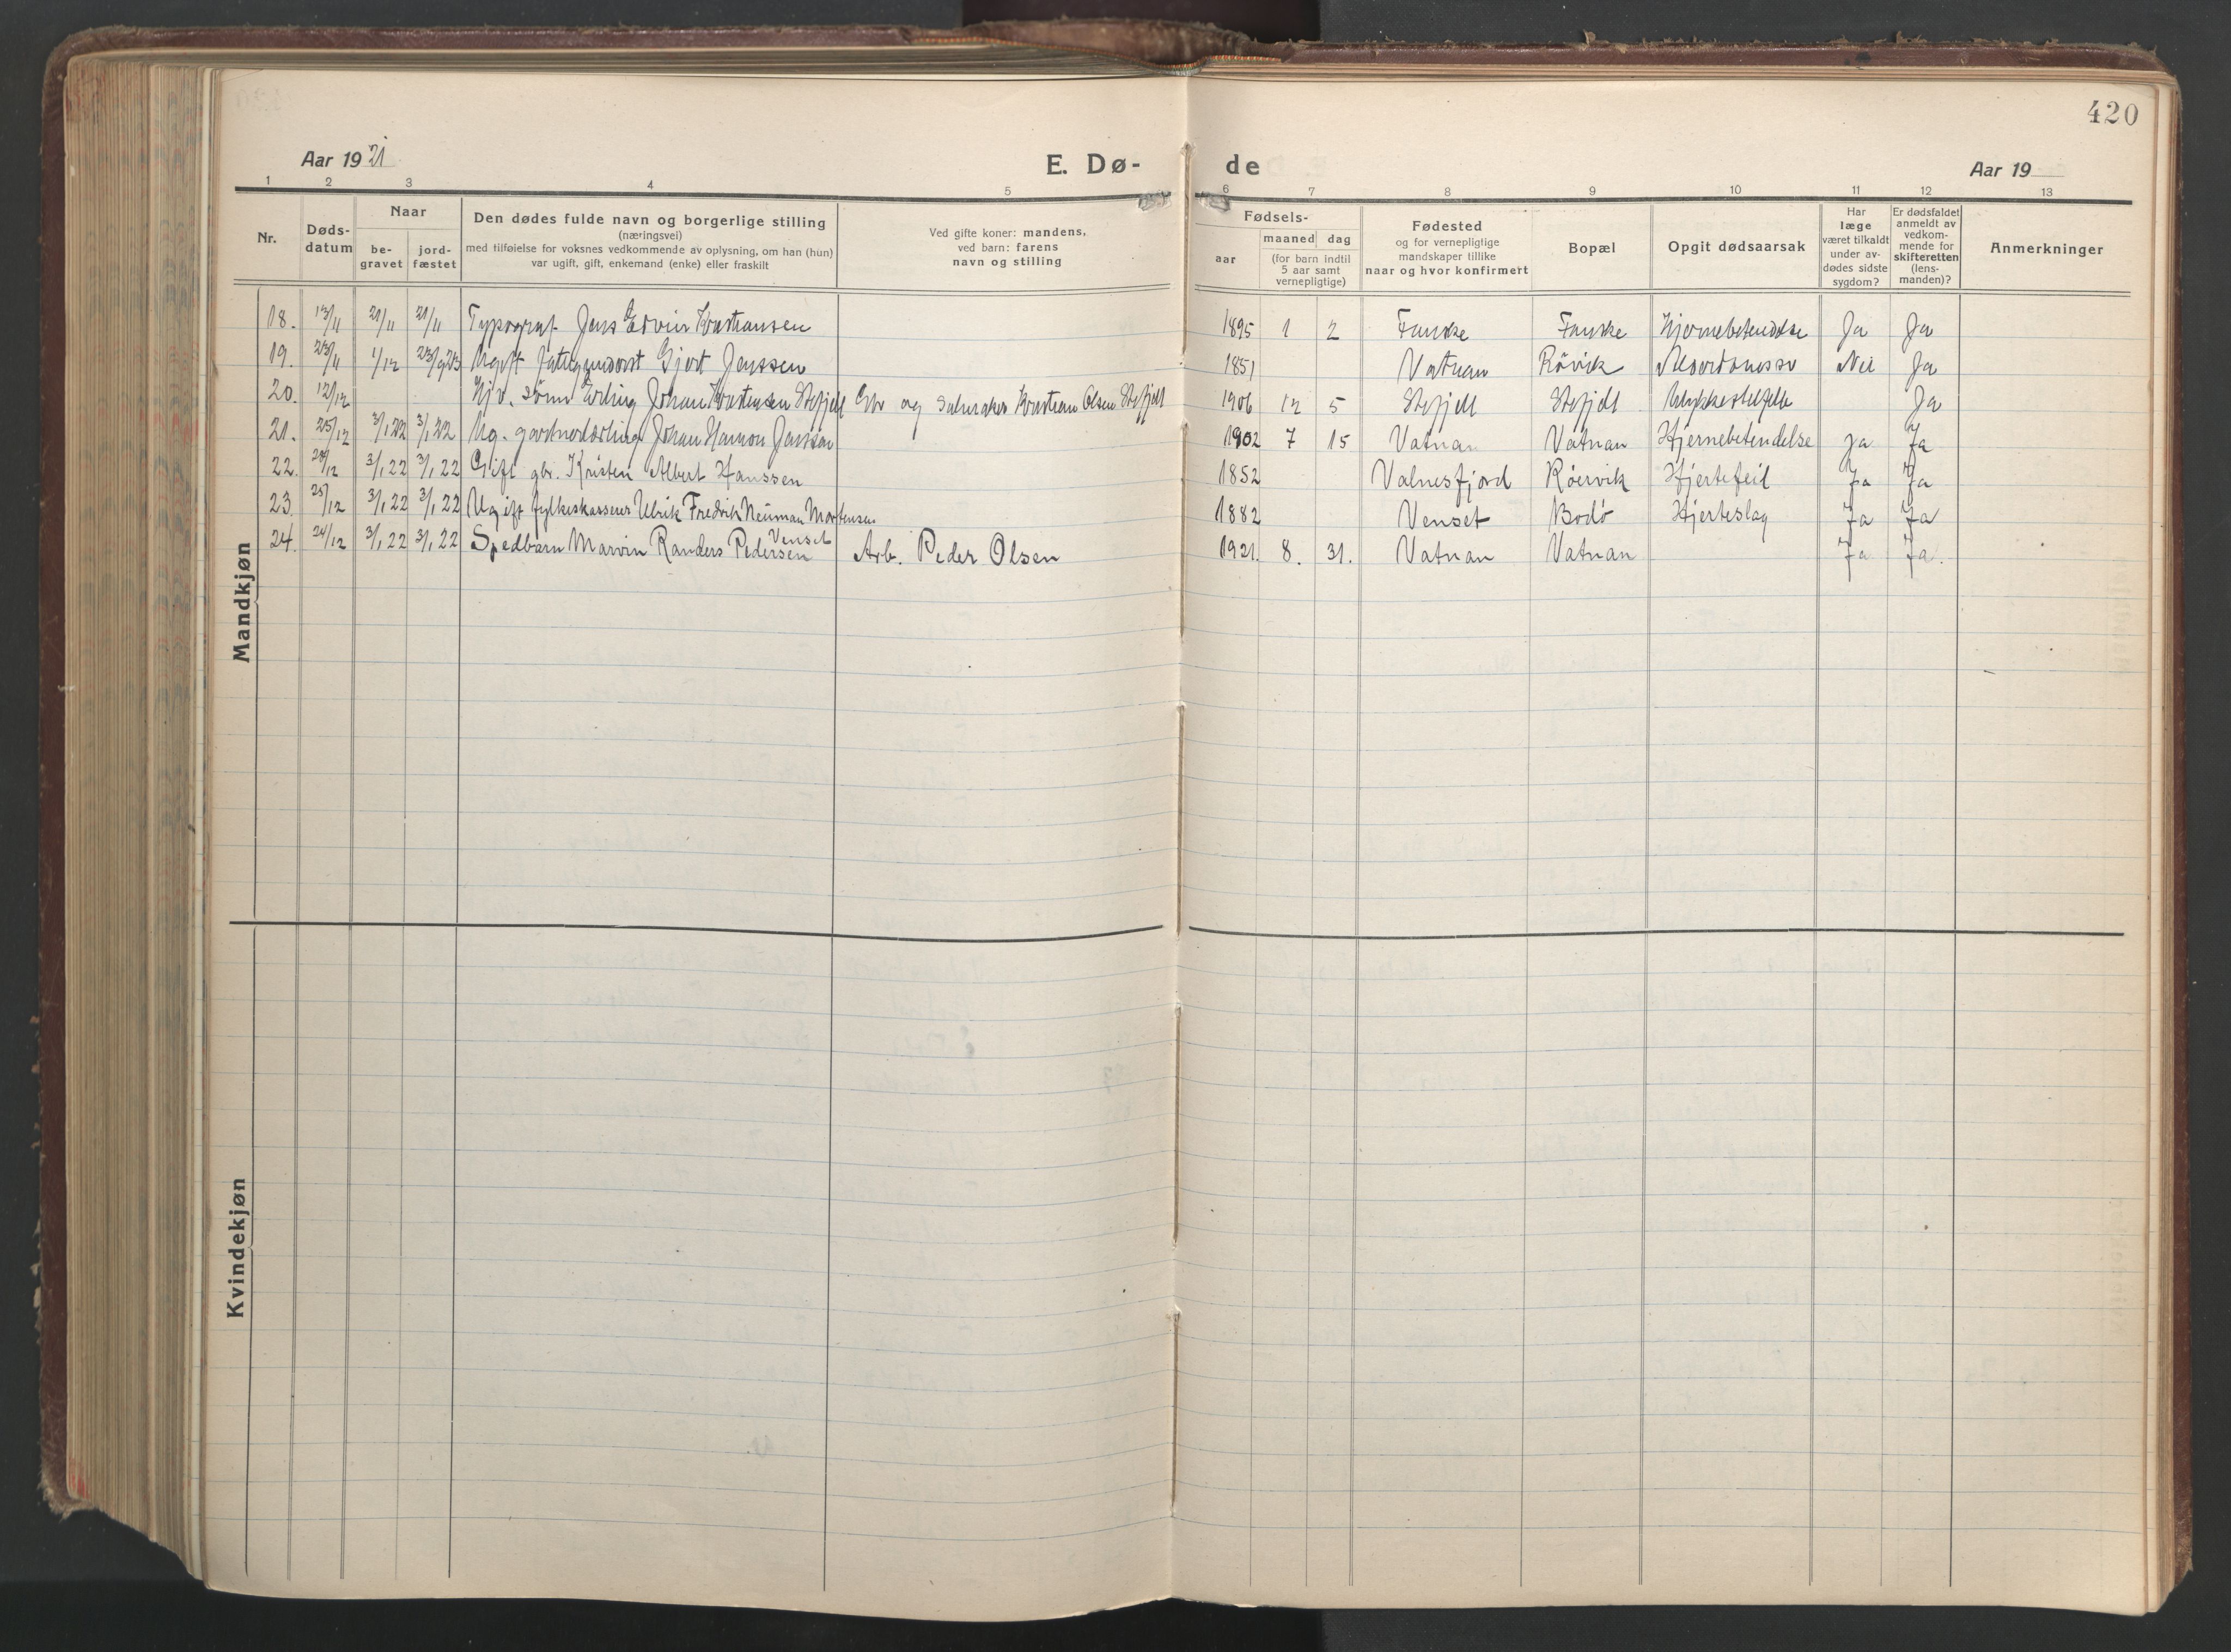 420
Aar 1921
E. Dø-
de
Aar 19
1 2 3 4 5 6 7 8 9 10 11 12 13
Nr.
Døds-
datum
Naar
be-
gravet
jord-
fæstet
Den dødes fulde navn og borgerlige stilling
(næringsvei)
med tilføielse for voksnes vedkommende av oplysning, om han (hun)
var ugift, gift, enkemand (enke) eller fraskilt
Ved gifte koner: mandens,
ved barn: farens
navn og stilling
Fødsels-
aar
maaned dag
(for barn indtil
5 aar samt
vernepligtige)
Fødested
og for vernepligtige
mandskaper tillike
naar og hvor konfirmert
Bopæl
Opgit dødsaarsak
Har
læge
været tilkaldt
under av-
dødes sidste
sygdom?
Er dødsfaldet
anmeldt av
vedkom-
mende for
skifteretten
(lens-
manden)?
Anmerkninger
Mandkjøn
18. 13/11 21/11 21/11 Typograf Jens Edvin Kristiansen 1895 1 2 Fauske Fauske Hjernebetendelse Ja Ja
19. 23/11 1/12 Ugift Gjert Janssen 1851 Vatnan Røvik Nei Ja
20. 12/12 Erling Johan Kristensen Stefjell Gbr og Kristian Olsen Stefjell 1906 12 5 Stefjell Stefjell Ulykkestilfelle Ja
21. 25/12 3/1 22 3/1 22 Ug. gartnerlærling Johan Hanson Janssen 1902 7 15 Vatnan Vatnan Hjernebetendelse ja Ja
22. 3/1 22 3/1 22 Gift gbr. Kristen Albert Hanssen 1852 Valnesfjord Röervik Hjertefeil Ja Ja
23. 25/12 3/1 22 3/1 22 Ugift fylkeskasserer Ulrik Fredrik Neuman Mortensen
Venset 1882 Venset Bodö Hjerteslag Ja Ja
24. 24/12 3/1 22 3/1 22 Spedbarn Marvin Randers Pedersen Arb. Peder Olsen 1921. 8. 31. Vatnan Vatnan Ja Ja.
Kvindekjøn